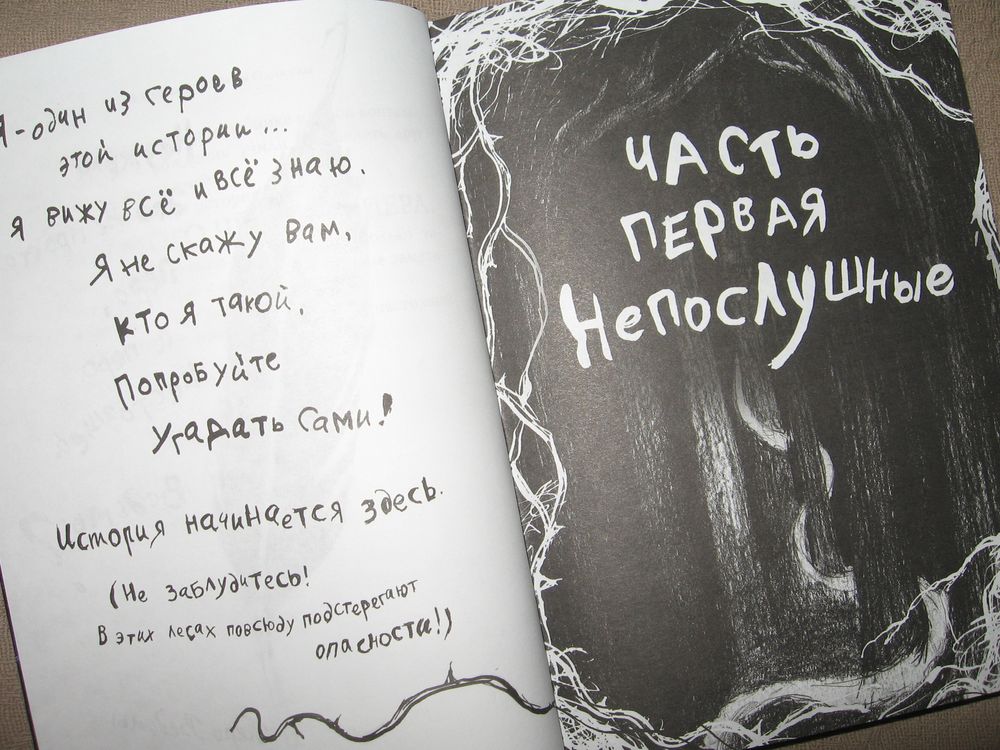 Я - один из героев
этой истории...
Я вижу всё и всё знаю.
Я не скажу вам,
кто я такой.
Попробуйте
угадать сами!
История начинается здесь.
(Не заблудитесь!
В этих лесах повсюду подстерегают
опасности!)
ЧАСТЬ
ПЕРВАЯ
Непослушные